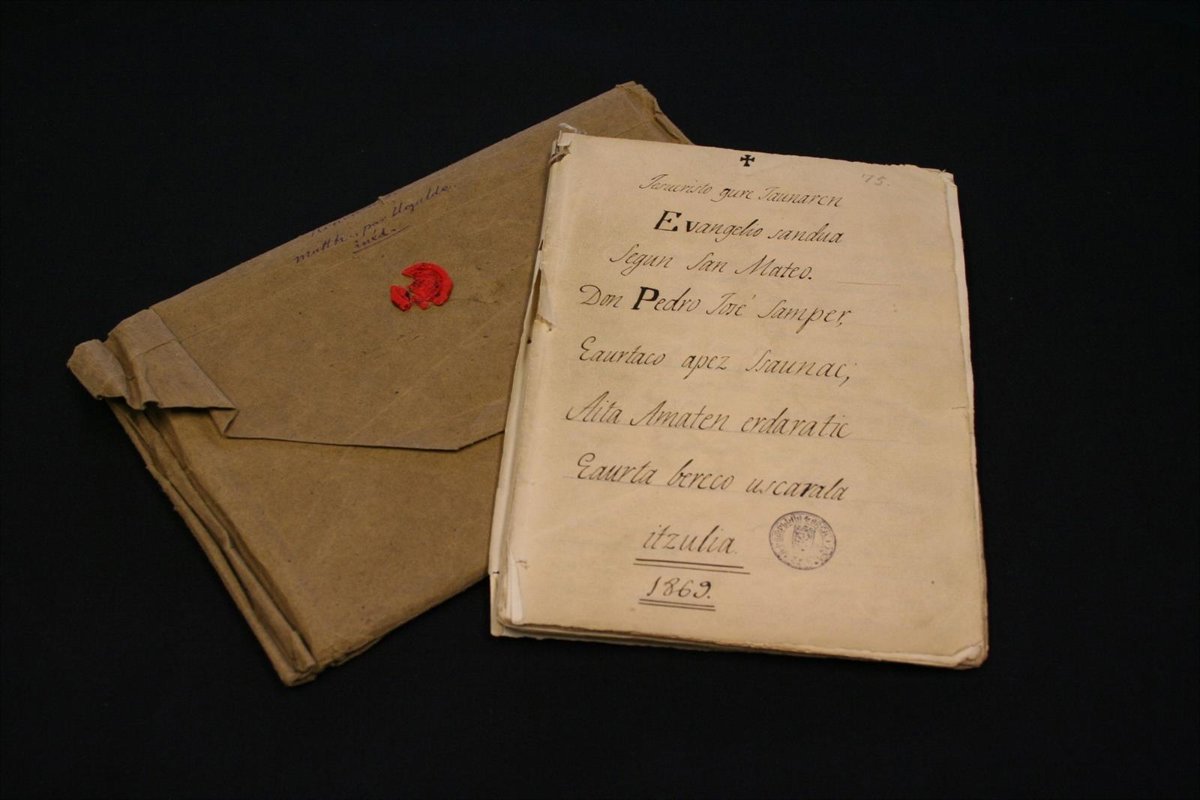 matth. par
inéd.
'75.
Jesucristo gure Jaunaren
Evangelio sandua
Segun San Mateo.
Don Pedro José Samper,
Eaurtaco apez Jaunac;
Aita Amaten erdaratic
Eaurta bereco uscarala
itzulia.
1869.